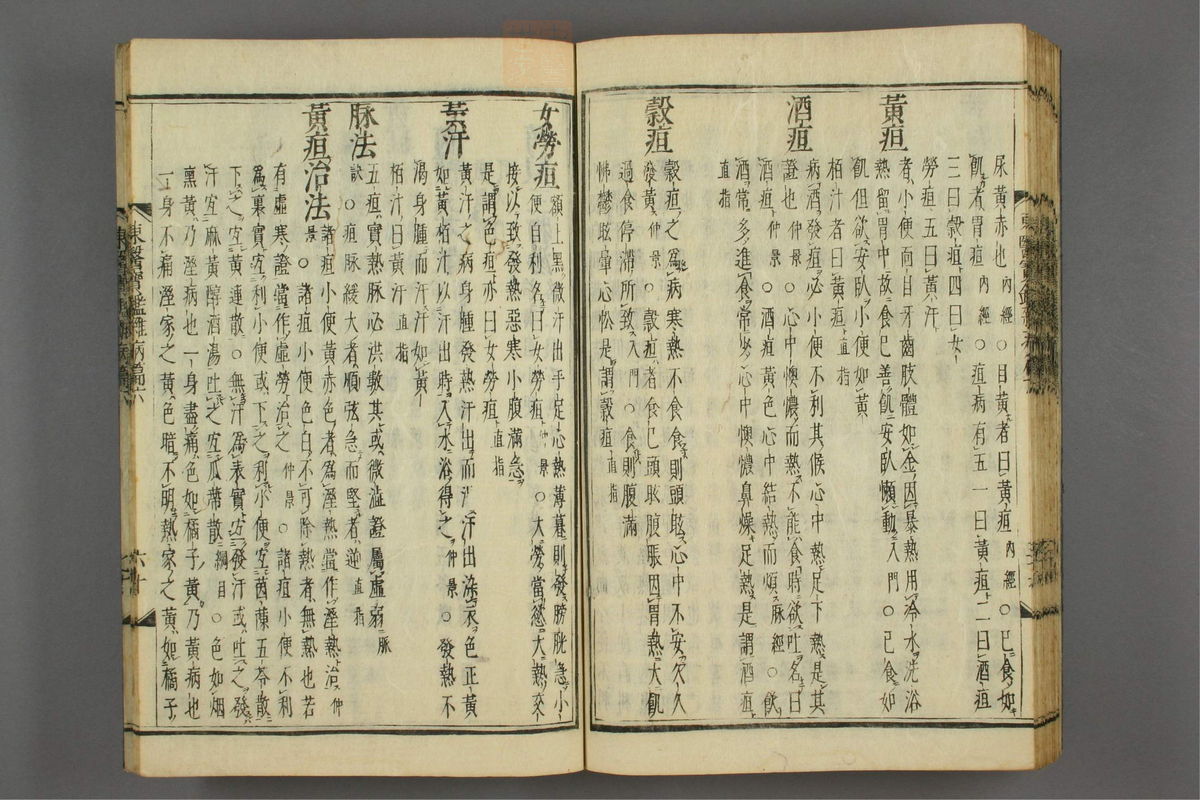 尿黃赤也內經○目黃者曰黃疸內經○已食如
飢者胃疸內經○疸病有五一曰黃疸二曰酒疸
三曰穀疸四曰女
勞疸五曰黃汗
黃疸
者小便面目牙齒肢體如金因暴熱用冷水洗浴
熱留胃中故食已善飢安臥懶動入門○已食如
飢但欲安臥小便如黃
栢汁者曰黃疸直指
酒疸
病酒發疸必小便不利其候心中熱足下熱是其
證也仲景○心中懊憹而熱不能食時欲吐名曰
酒疸仲景○酒疸黃色心中結熱而煩脉經○飲
酒常多進食常少心中懊憹鼻燥足熱是謂酒疸
直指
穀疸
穀疸之爲病寒熱不食食則頭眩心中不安久久
發黃仲景○穀疸者食已頭眩腹脹因胃熱大飢
過食停滯所致入門○食則腹滿
怫鬱眩暈心忪是謂穀疸直指
女勞疸
額上黑微汗出手足心熱薄暮則發膀胱急小
便自利名曰女勞疸仲景○大勞當慾大熱卒
接以致發熱惡寒小腹滿急
是謂色疸亦曰女勞疸直指
黃汗
黃汗之病身腫發熱汗出而渴汗出染衣色正黃
如黃栢汁以汗出時入水浴得之仲景○發熱不
渴身腫而汗汗如黃
栢汁曰黃汗直指
脉法
五疸實熱脉必洪數其或微澁證屬虛弱脉
訣○疸脉緩大者順弦急而堅者逆直指
黃疸治法
諸疸小便黃赤色者爲溼熱當作溼熱治仲
景○諸疸小便色白不可除熱者無熱也若
有虛寒證當作虛勞治之仲景○諸疸小便不利
爲裏實宜利小便或下之利小便宜茵蔯五苓散
下之宜黃連散○無汗爲表實宜發汗或吐之發
汗宜麻黃醇酒湯吐之宜瓜蔕散綱目○色如烟
熏黃乃溼病也一身盡痛色如橘子黃乃黃病也
一身不痛溼家之黃色暗不明熱家之黃如橘子
東醫寶鑑雜病篇六
六十